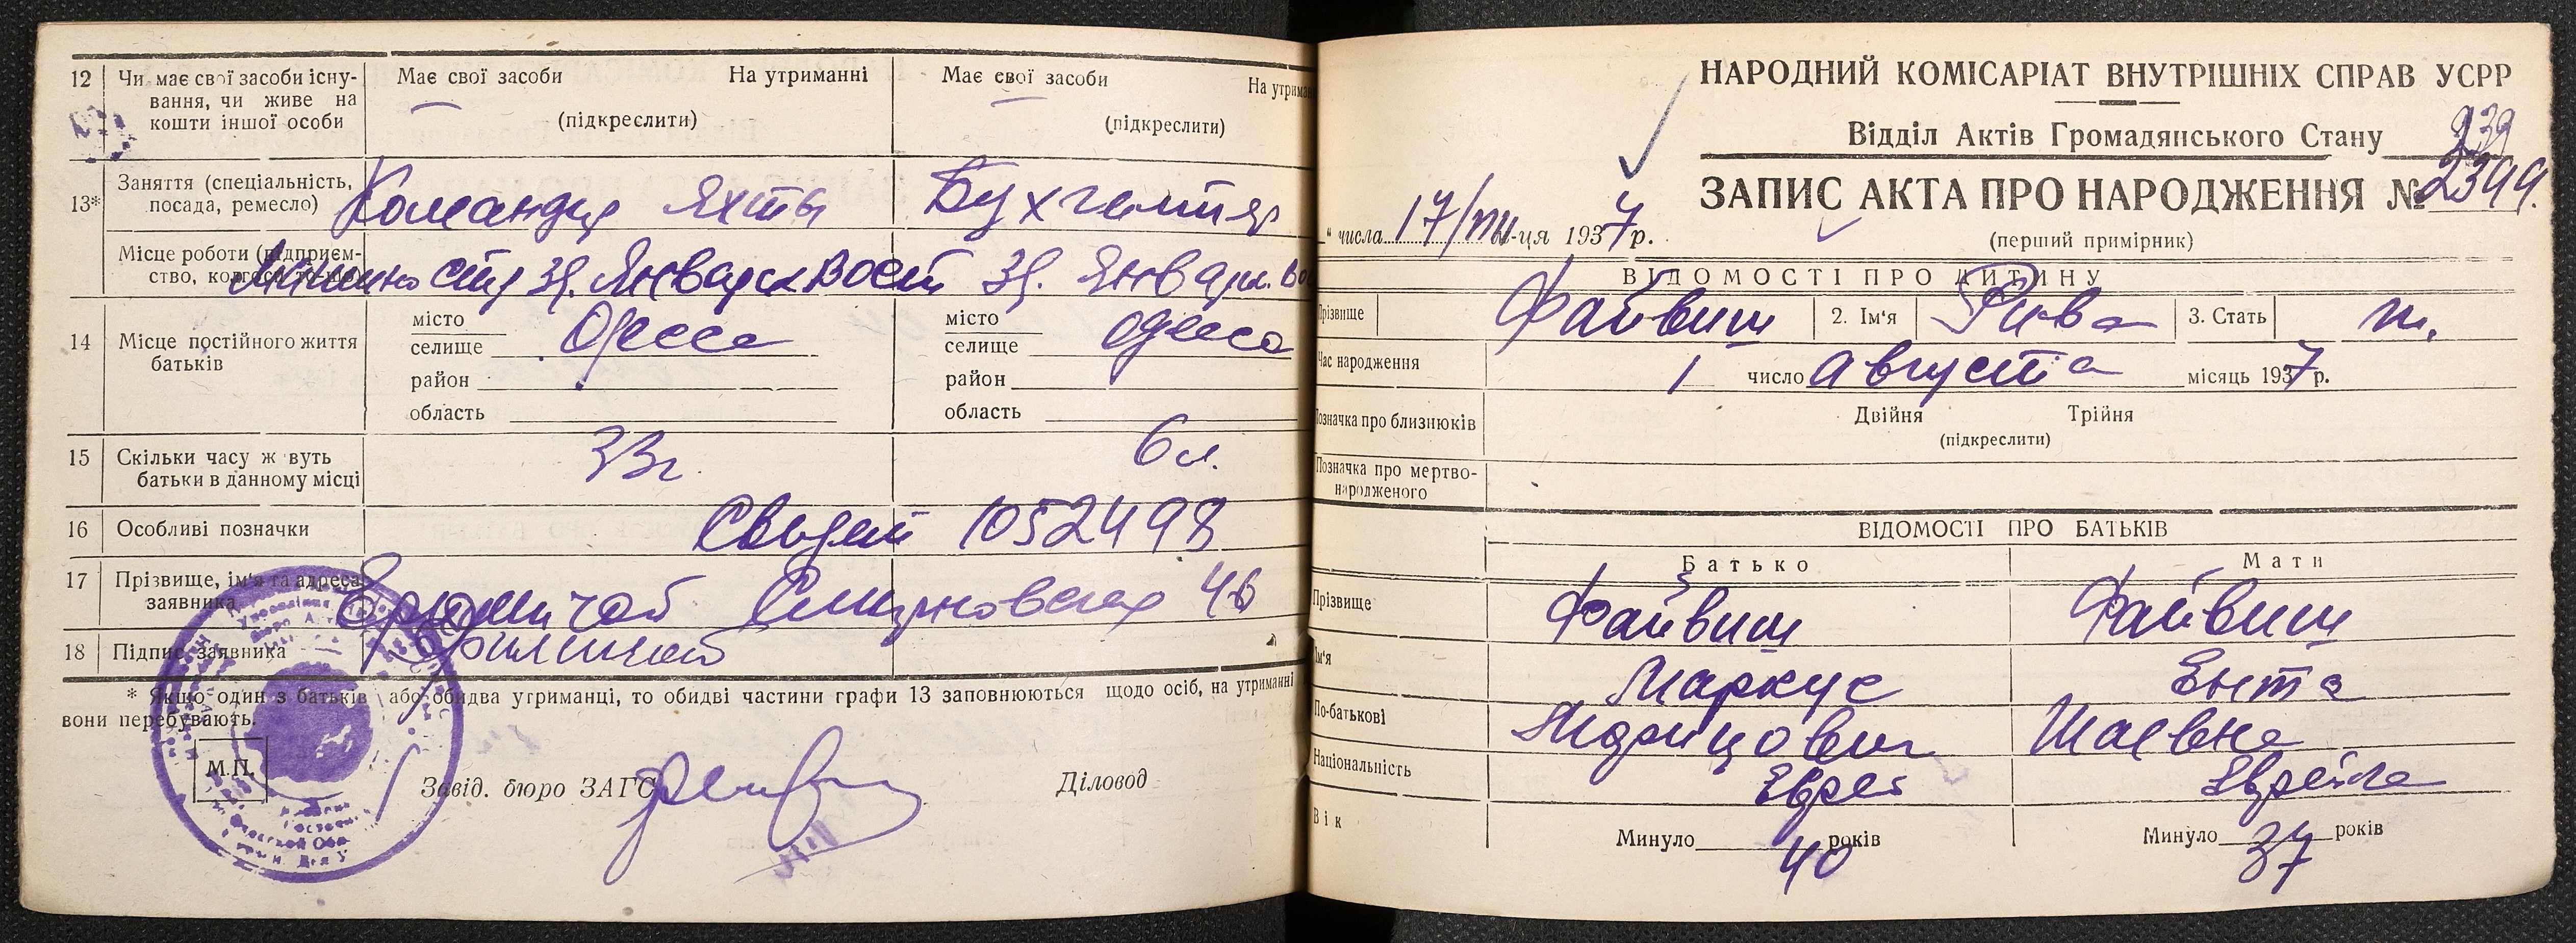 12 Чи має свої засоби існу-
вання, чи живе на
кошти іншої особи
Має свої засоби На утриманні
(підкреслити)
Має свої засоби На утриман
(підкреслити)
13* Заняття (спеціальність,
посада, ремесло)
Командир Яхты
Бухгалтер
Місце роботи (підприєм-
ство,
Январск Восст
Январск. Во
14 Місце постійного життя
батьків
місто
селище Одесса
район
область
місто
селище Одесса
район
область
15 Скільки часу ж вуть
батьки в данному місці
33г.
6л.
16 Особливі позначки
Свидет 1052498
17 Прізвище, ім'я та адреса
заявника
46
18 Підпис заявника
* Якщо один з батьків або обидва утриманці, то обидві частини графи 13 заповнюються щодо осіб, на утриманні
вони перебувають.
М.П.
Завід. бюро ЗАГС
Діловод
НАРОДНИЙ КОМІСАРІАТ ВНУТРІШНІХ СПРАВ УСРР
Відділ Актів Громадянського Стану
939
ЗАПИС АКТА ПРО НАРОДЖЕННЯ № 2399.
" числа 17/VIII м-ця 1937 р.
(перший примірник)
ВІДОМОСТІ ПРО ДИТИНУ
Прізвище Файвиш 2. Ім'я Рива 3. Стать ж.
Час народження
1 число Августа місяць 1937 р.
Позначка про близнюків
Двійня Трійня
(підкреслити)
Позначка про мертво-
народженого
ВІДОМОСТІ ПРО БАТЬКІВ
Батько Мати
Прізвище Файвиш Файвиш
Ім'я Маркус Ента
По-батькові Шаевна
Національність Еврей Еврейка
Вік
Минуло 40 років
Минуло 37 років